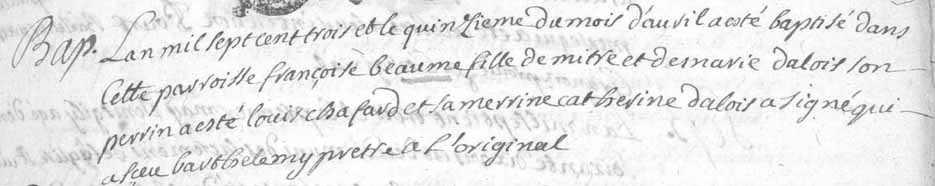 Bap. Lan mil sept cent trois et le quinzieme du mois d'avril a esté baptisé dans
cette parroisse françoise beaume fille de mitre et de marie dalois son
perrin a esté louis chafard et sa merrine catherine dalois a signé qui
a sceu barthelemy pretre a L'original